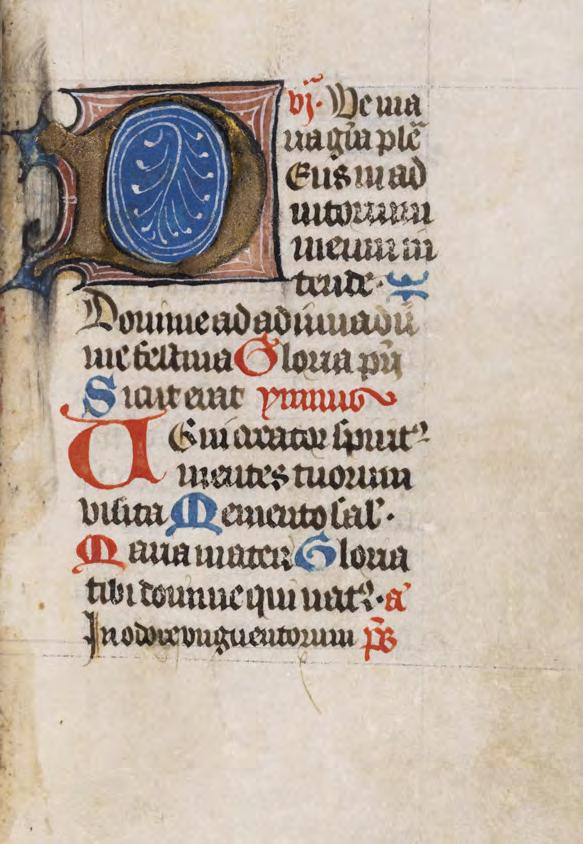 vj. Ue ma
ria gr̄a plē
DEus in ad
iutorium
meum in
tende.
Domine ad adiuuādū
me festina Gloria pr̄i
Sicut erat ymnus
UEni creator spirit᷒
mentes tuorum
visita Memento sal'.
Maria mater Gloria
tibi domine qui nat᷒. a᷒
In odore vnguentorum ps̄